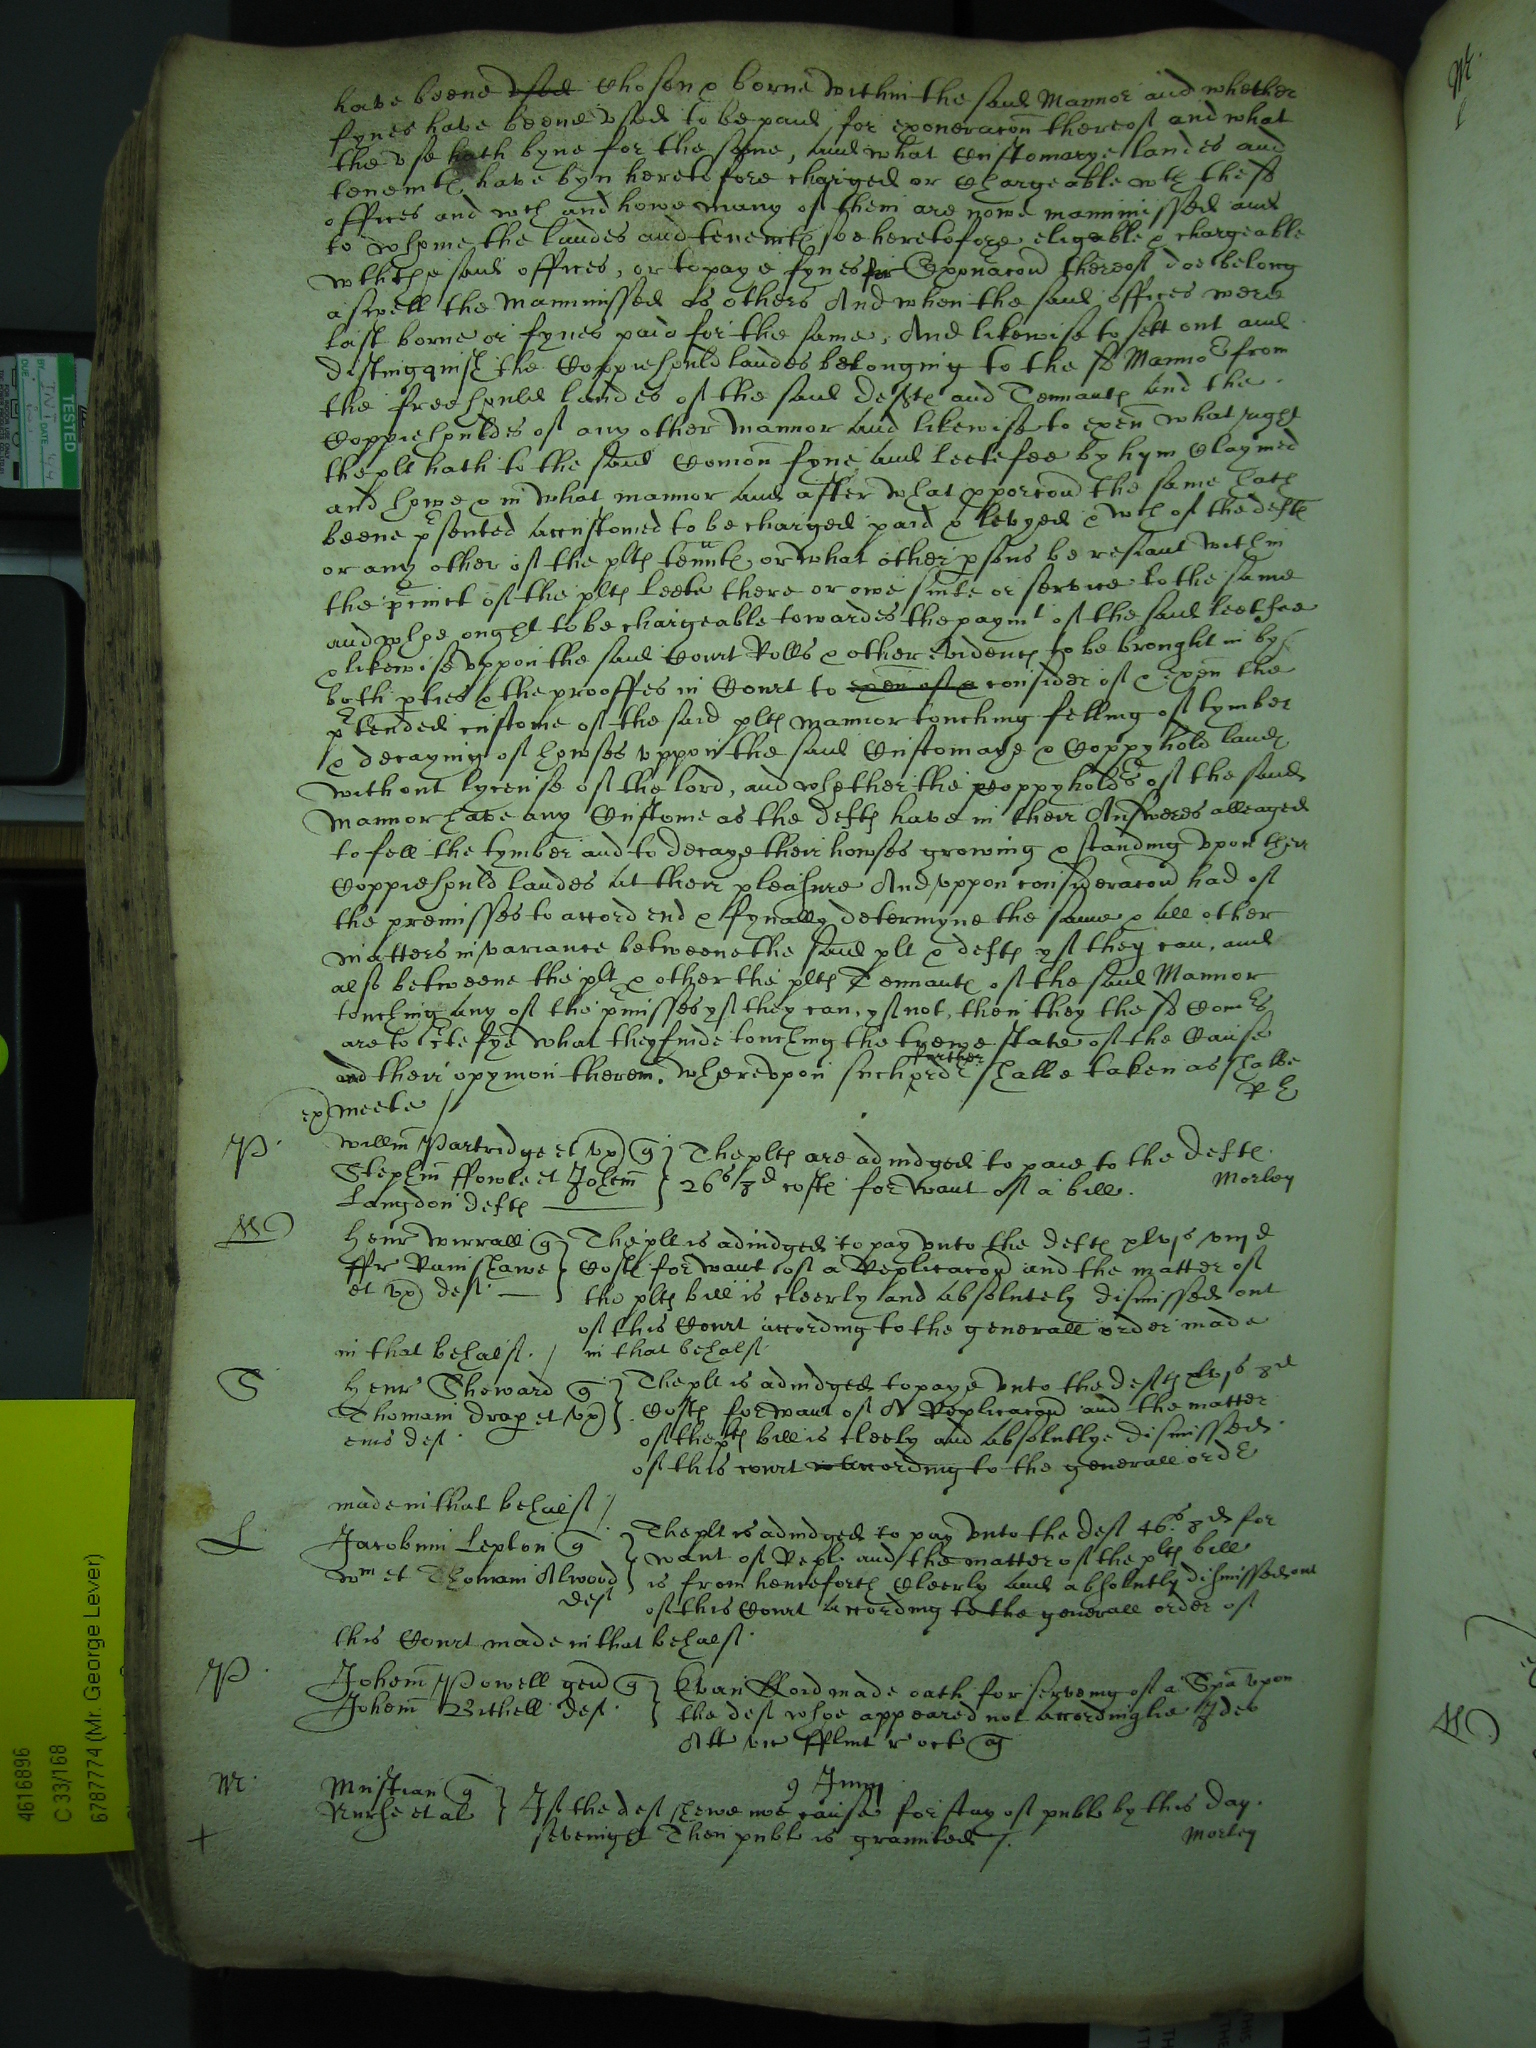 have beene used Chosen & borne within the said Mannor and whether
fynes have beene used to be paid for exoneracon thereof and what
the use hath byne for the same, and what Customarye landes and
tenemtes have byn heretofore charged or Chargeable wth these
offices and wch and howe many of them are nowe manimissed and
to whome the landes and tenemtes soe heretofore eligable & chargeable
wth the said offices, or to paye fynes for Exonacon thereof doe belong
aswell the Manimissed as others And when the said offices were
last borne or fynes paid for the same, And likewise to sett out and
distingquish the Coppiehould landes belonging to the sd Mannor from
the freehould landes of the said deftes and Tennantes and the
Coppiehouldes of any other Mannor and likewise to exen what right
the plt hath to the said Comon fyne and leetefee by hym Claymed
and howe & in what mannor and after what pporcon the same hath
beene psented accustomed to be charged paid & levyed & wch of the deftes
or any other of the pltes tennts or what other psons be resiant within
the pcinct of the pltes leete there or owe suite or service to the same
and whoe ought to be chargeable towardes the paymt of the said leetfee
& likewise uppon the said Court Rolls & other evidences to be brought in by
both pties & the prooffes in Court to exen of & consider of & exen the
ptended custome of the said pltes mannor touching felling of tymber
& decaying of howses uppon the said Customarye & Coppyhold landes
without lycense of the lord, and whether the Coppyholders of the said
Mannor have any Custome as the deftes have in their Answeres alleaged
to fell the tymber and to decaye their howses growing & standing upon their
Coppiehould landes at their pleasure And uppon consideracon had of
the premisses to accord end & fynally determyne the same & all other
matters in variance betweene the said plt & deftes yf they can, and
also betweene the plt & other the pltes Tennantes of the said Mannor
touching any of the pmisses yf they can, yf not, then they the sd Comrs
are to certefye what they finde touching the trewe state of the Cause
and their opynion therein. Whereupon such further order shalbe taken as shalbe
meete
P Willm Partridge et ux Stephm ffowle et Johem Langdon deftes
The pltes are adiudged to paie to the deftes
26s/8d costes for want of a bill. Morley
W Henr Wirrall ffr Ranishawe et ux def
The plt is adiudged to pay unto the deftes xlvjs viijd
Costes for want of a Replicacon and the matter of
the pltes bill is cleerly and absolutely dismissed out
of this Court according to the generall order made
in that behalf. / in that behalf
S Henr Showard Thomam drap et ux eius def
The plt is adiudged to paye unto the deftes xlvjs 8d
Costes for want of A Replicacon and the matter
of the pltes bill is cleerly and absolutlye dismissed
of this court according to the generall order
made in that behalf /
L Jacobum Lepton Wm et Thomam Alwood def
The plt is adiudged to pay unto the def 46s 8d for
want of Repl. and the matter of the pltes bill
is from henceforth Cleerly and absolutly dismissed out
of this Court according to the generall order of
this Court made in that behalf.
P Johem Powell gen Johem Bithell def
Evan fford made oath for serveing of a Spa upon
the def whoe appeared not accordinglie Ideo
Att vic fflint r oct
M Mustian Nurse et al
9 Junij
If the def shewe noe cause for stay of publ by this day
sevenight Then publ is graunted /. Morley
+
TESTED
4616896
C 33/168
6787774 (Mr. George Lever)